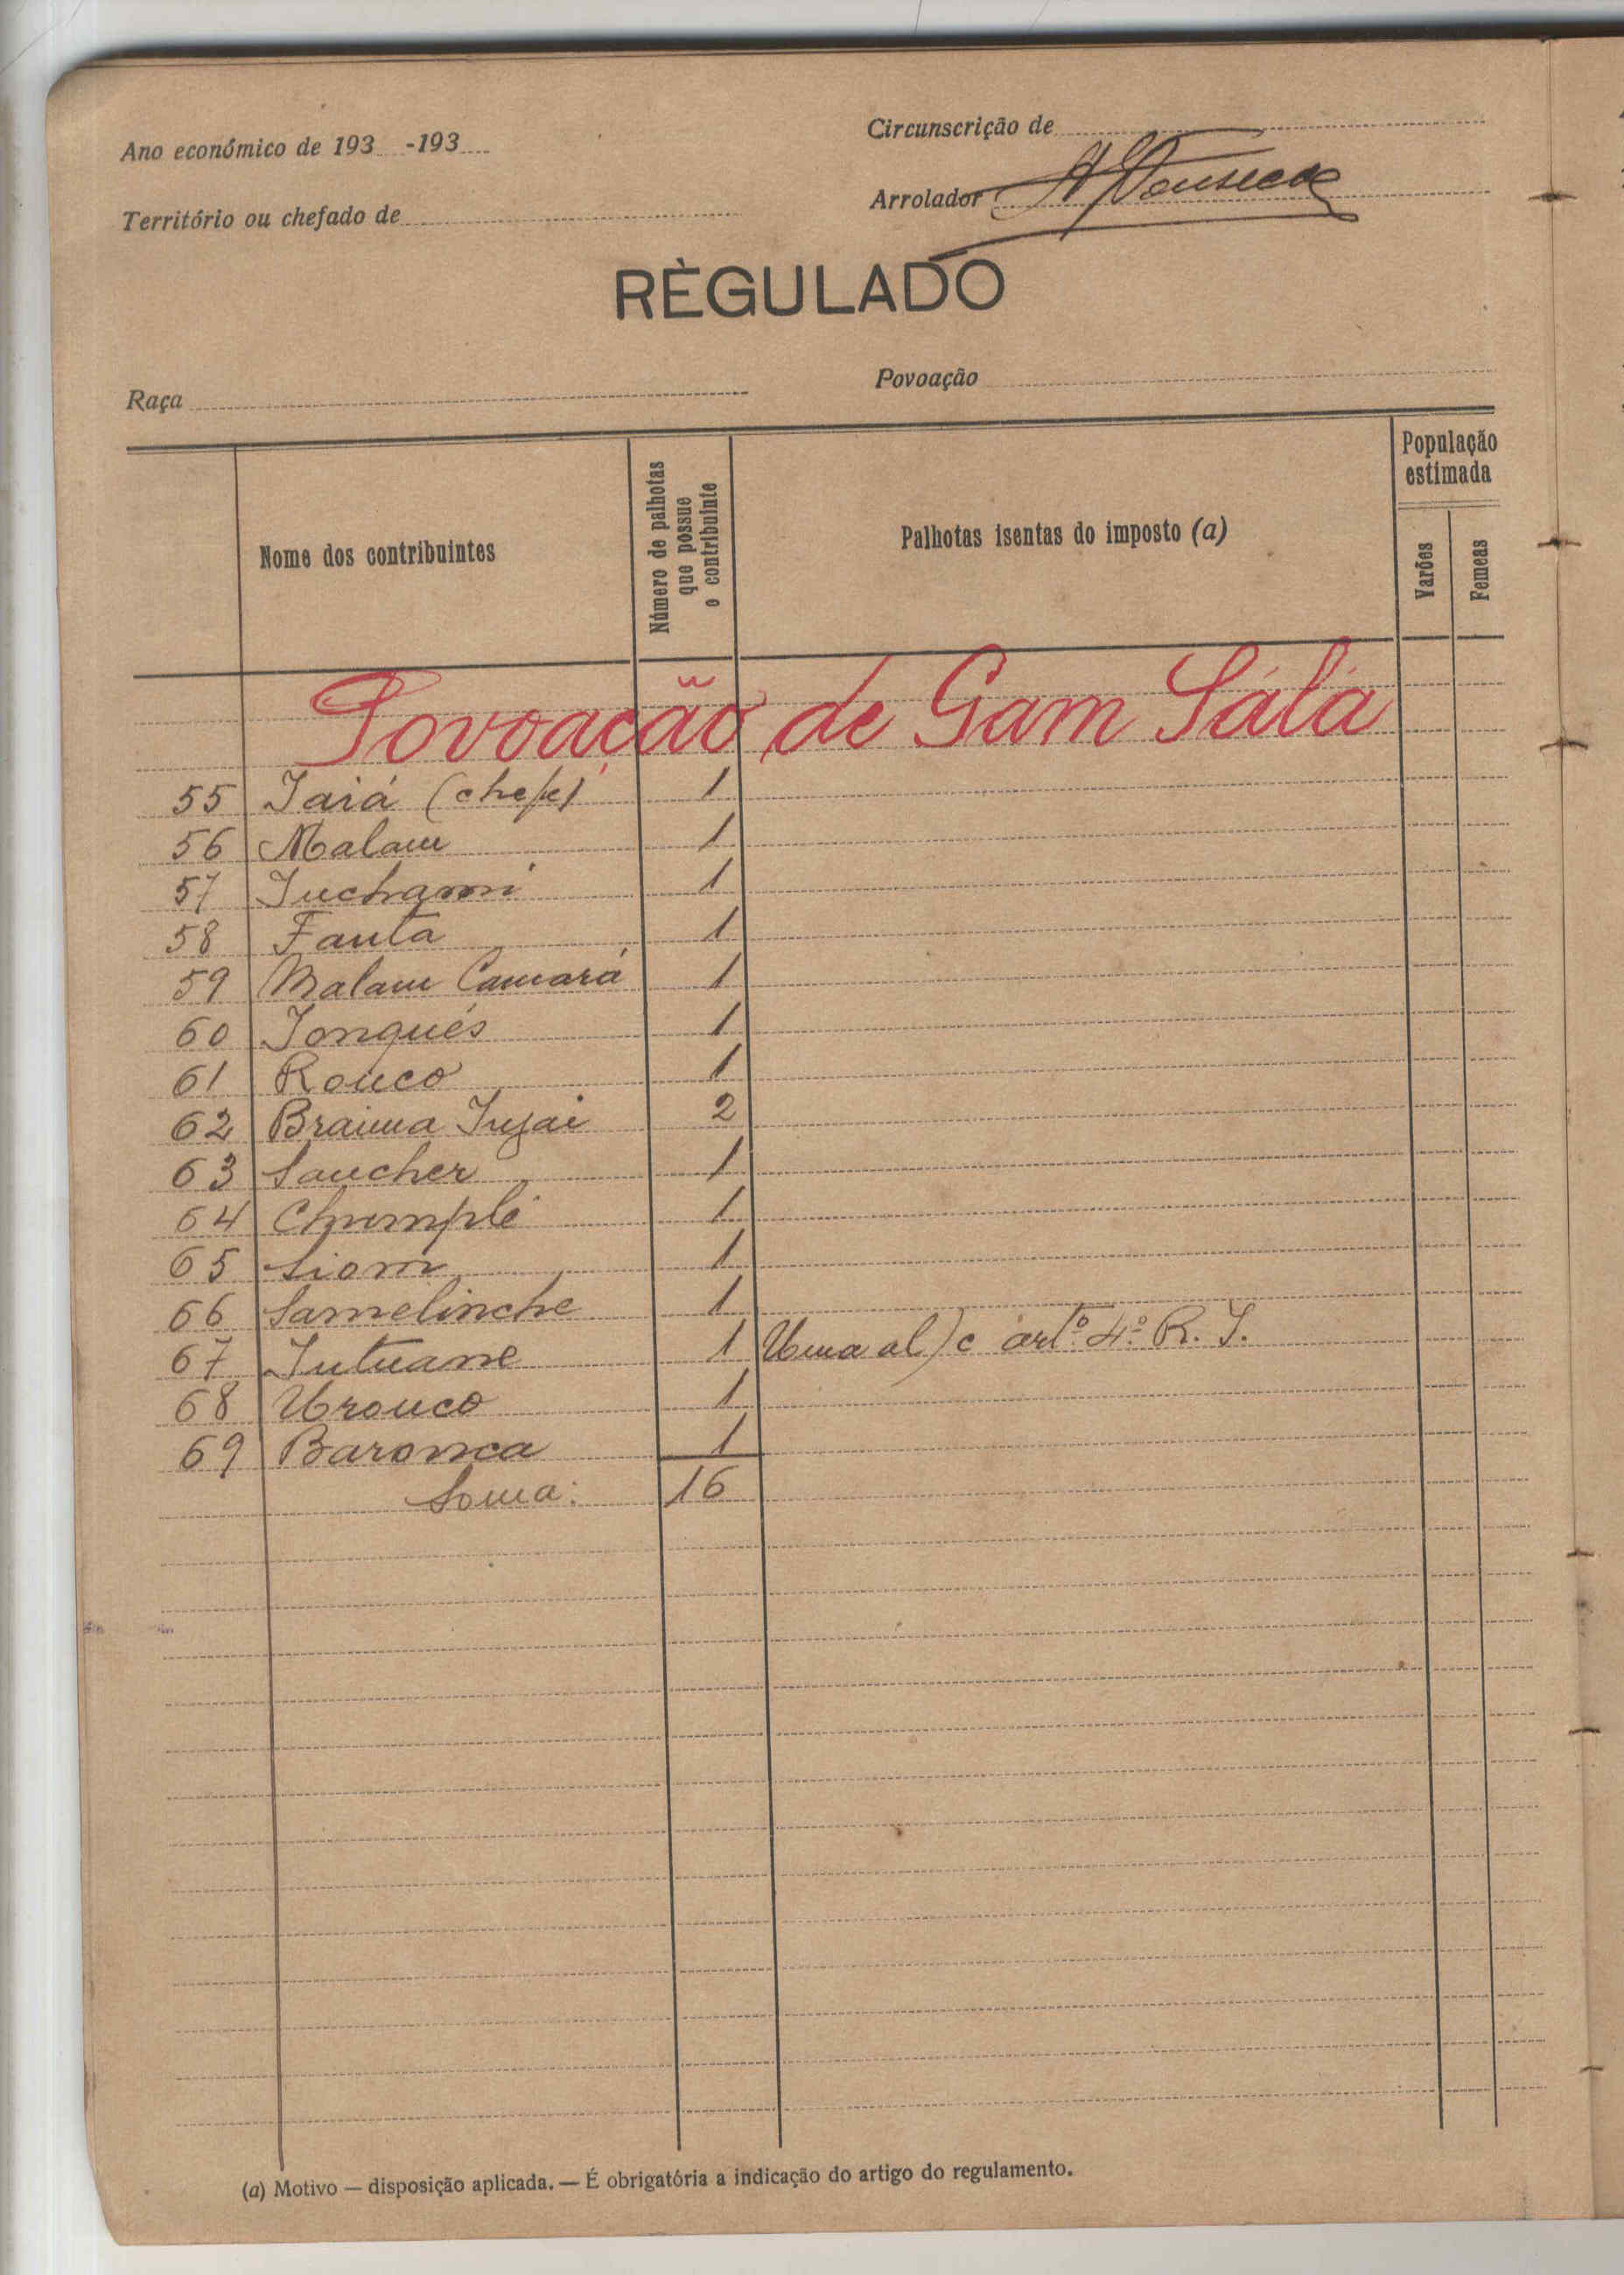 Ano económico de 193 -193
Circunscrição de
Território ou chefado de
Arrolador AFonseca
RÈGULADO
Raça
Povoação
Nome dos contribuintes
Número de palhotas que possue o contribuinte
Palhotas isentas do imposto (a)
População estimada
Varões
Femeas
Povoação de Gam Sálá
55 Jaiá (chefe) 1
56 Malam 1
57 Juchami 1
58 Fanta 1
59 Malam Camará 1
60 Jonqués 1
61 Rouco 1
62 Braima Injai 2
63 Saucher 1
64 Chumplé 1
65 Siom 1
66 Samelinche 1
67 Intuane 1 Uma al) c artº 4º R. I.
68 Urouco 1
69 Baronca 1
Soma: 16
(a) Motivo — disposição aplicada. — É obrigatória a indicação do artigo do regulamento.